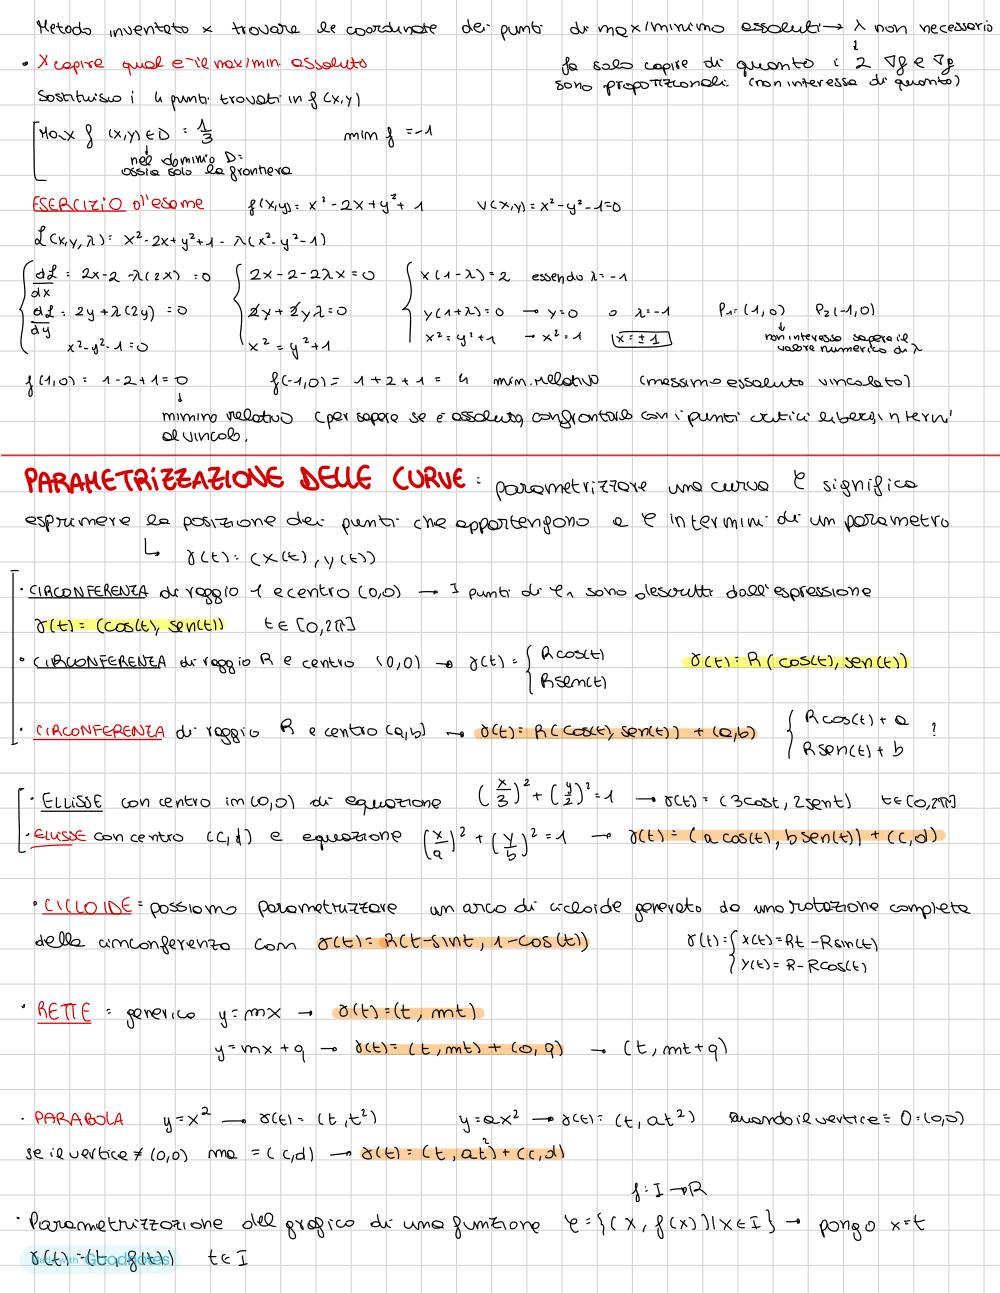 Metodo inventato x trovare le coordinate dei punti di max/minimo assoluti → λ non necessario
• X capire qual e' il max/min assoluto
fa solo capire di quanto i 2 ∇f e ∇g
sono proporzionali (non interessa di quanto)
Sostituisco i 4 punti trovati in f(x,y)
Max f (x,y)∈D = 1/3 min f = -1
nel dominio D:
ossia solo la frontiera
ESERCIZIO d'esame f(x,y)= x²-2x+y²+1 V(x,y)=x²-y²-1=0
L(x,y,λ)= x²-2x+y²+1-λ(x²-y²-1)
dL/dx = 2x-2-λ(2x)=0 2x-2-2λx=0 x(1-λ)=2 essendo λ=-1
dL/dy = 2y+λ(2y)=0 2y+2yλ=0 y(1+λ)=0 → y=0 o λ=-1 P₁=(1,0) P₂(-1,0)
x²-y²-1=0 x²=y²+1 x²=y²+1 → x²=1 x=±1
non interessa sapere il
valore numerico di λ
f(1,0)= 1-2+1=0 f(-1,0)= 1+2+1= 4 min. relativo (massimo assoluto vincolato)
minimo relativo (per sapere se è assoluto, confrontarlo con i punti critici liberi interni
al vincolo.
PARAMETRIZZAZIONE DELLE CURVE: parametrizzare una curva C significa
esprimere la posizione dei punti che appartengono a C in termini di un parametro
↳ γ(t)=(x(t),y(t))
• CIRCONFERENZA di raggio 1 e centro (0,0) → I punti di C₁ sono descritti dall'espressione
γ(t)=(cos(t), sen(t)) t∈[0,2π]
• CIRCONFERENZA di raggio R e centro (0,0) → γ(t)= { Rcos(t) γ(t)=R(cos(t),sen(t))
Rsen(t)
• CIRCONFERENZA di raggio R e centro (a,b) → γ(t)=R(cos(t),sen(t))+(a,b) { Rcos(t)+a ?
Rsen(t)+b
• ELLISSE con centro in (0,0) di equazione (x/3)²+(y/2)²=1 → γ(t)=(3cost,2sent) t∈[0,2π]
• ELLISSE con centro (c,d) e equazione (x/a)²+(y/b)²=1 → γ(t)=(a cos(t), b sen(t))+(c,d)
• CICLOIDE = possiamo parametrizzare un arco di cicloide generato da una rotazione completa
della circonferenza con γ(t)=R(t-sint, 1-cos(t)) γ(t)= { x(t)=Rt-Rsin(t)
y(t)=R-Rcos(t)
• RETTE = generico y=mx → γ(t)=(t, mt)
y=mx+q → γ(t)=(t,mt)+(0,q) → (t,mt+q)
• PARABOLA y=x² → γ(t)=(t,t²) y=ax² → γ(t)=(t,at²) quando il vertice = O=(0,0)
se il vertice ≠ (0,0) ma =(c,d) → γ(t)=(t,at²)+(c,d)
f: I → R
• Parametrizzazione del grafico di una funzione C={(x,f(x))|x∈I} → pongo x=t
γ(t)=(t,f(t)) t∈I
Made with Goodnotes